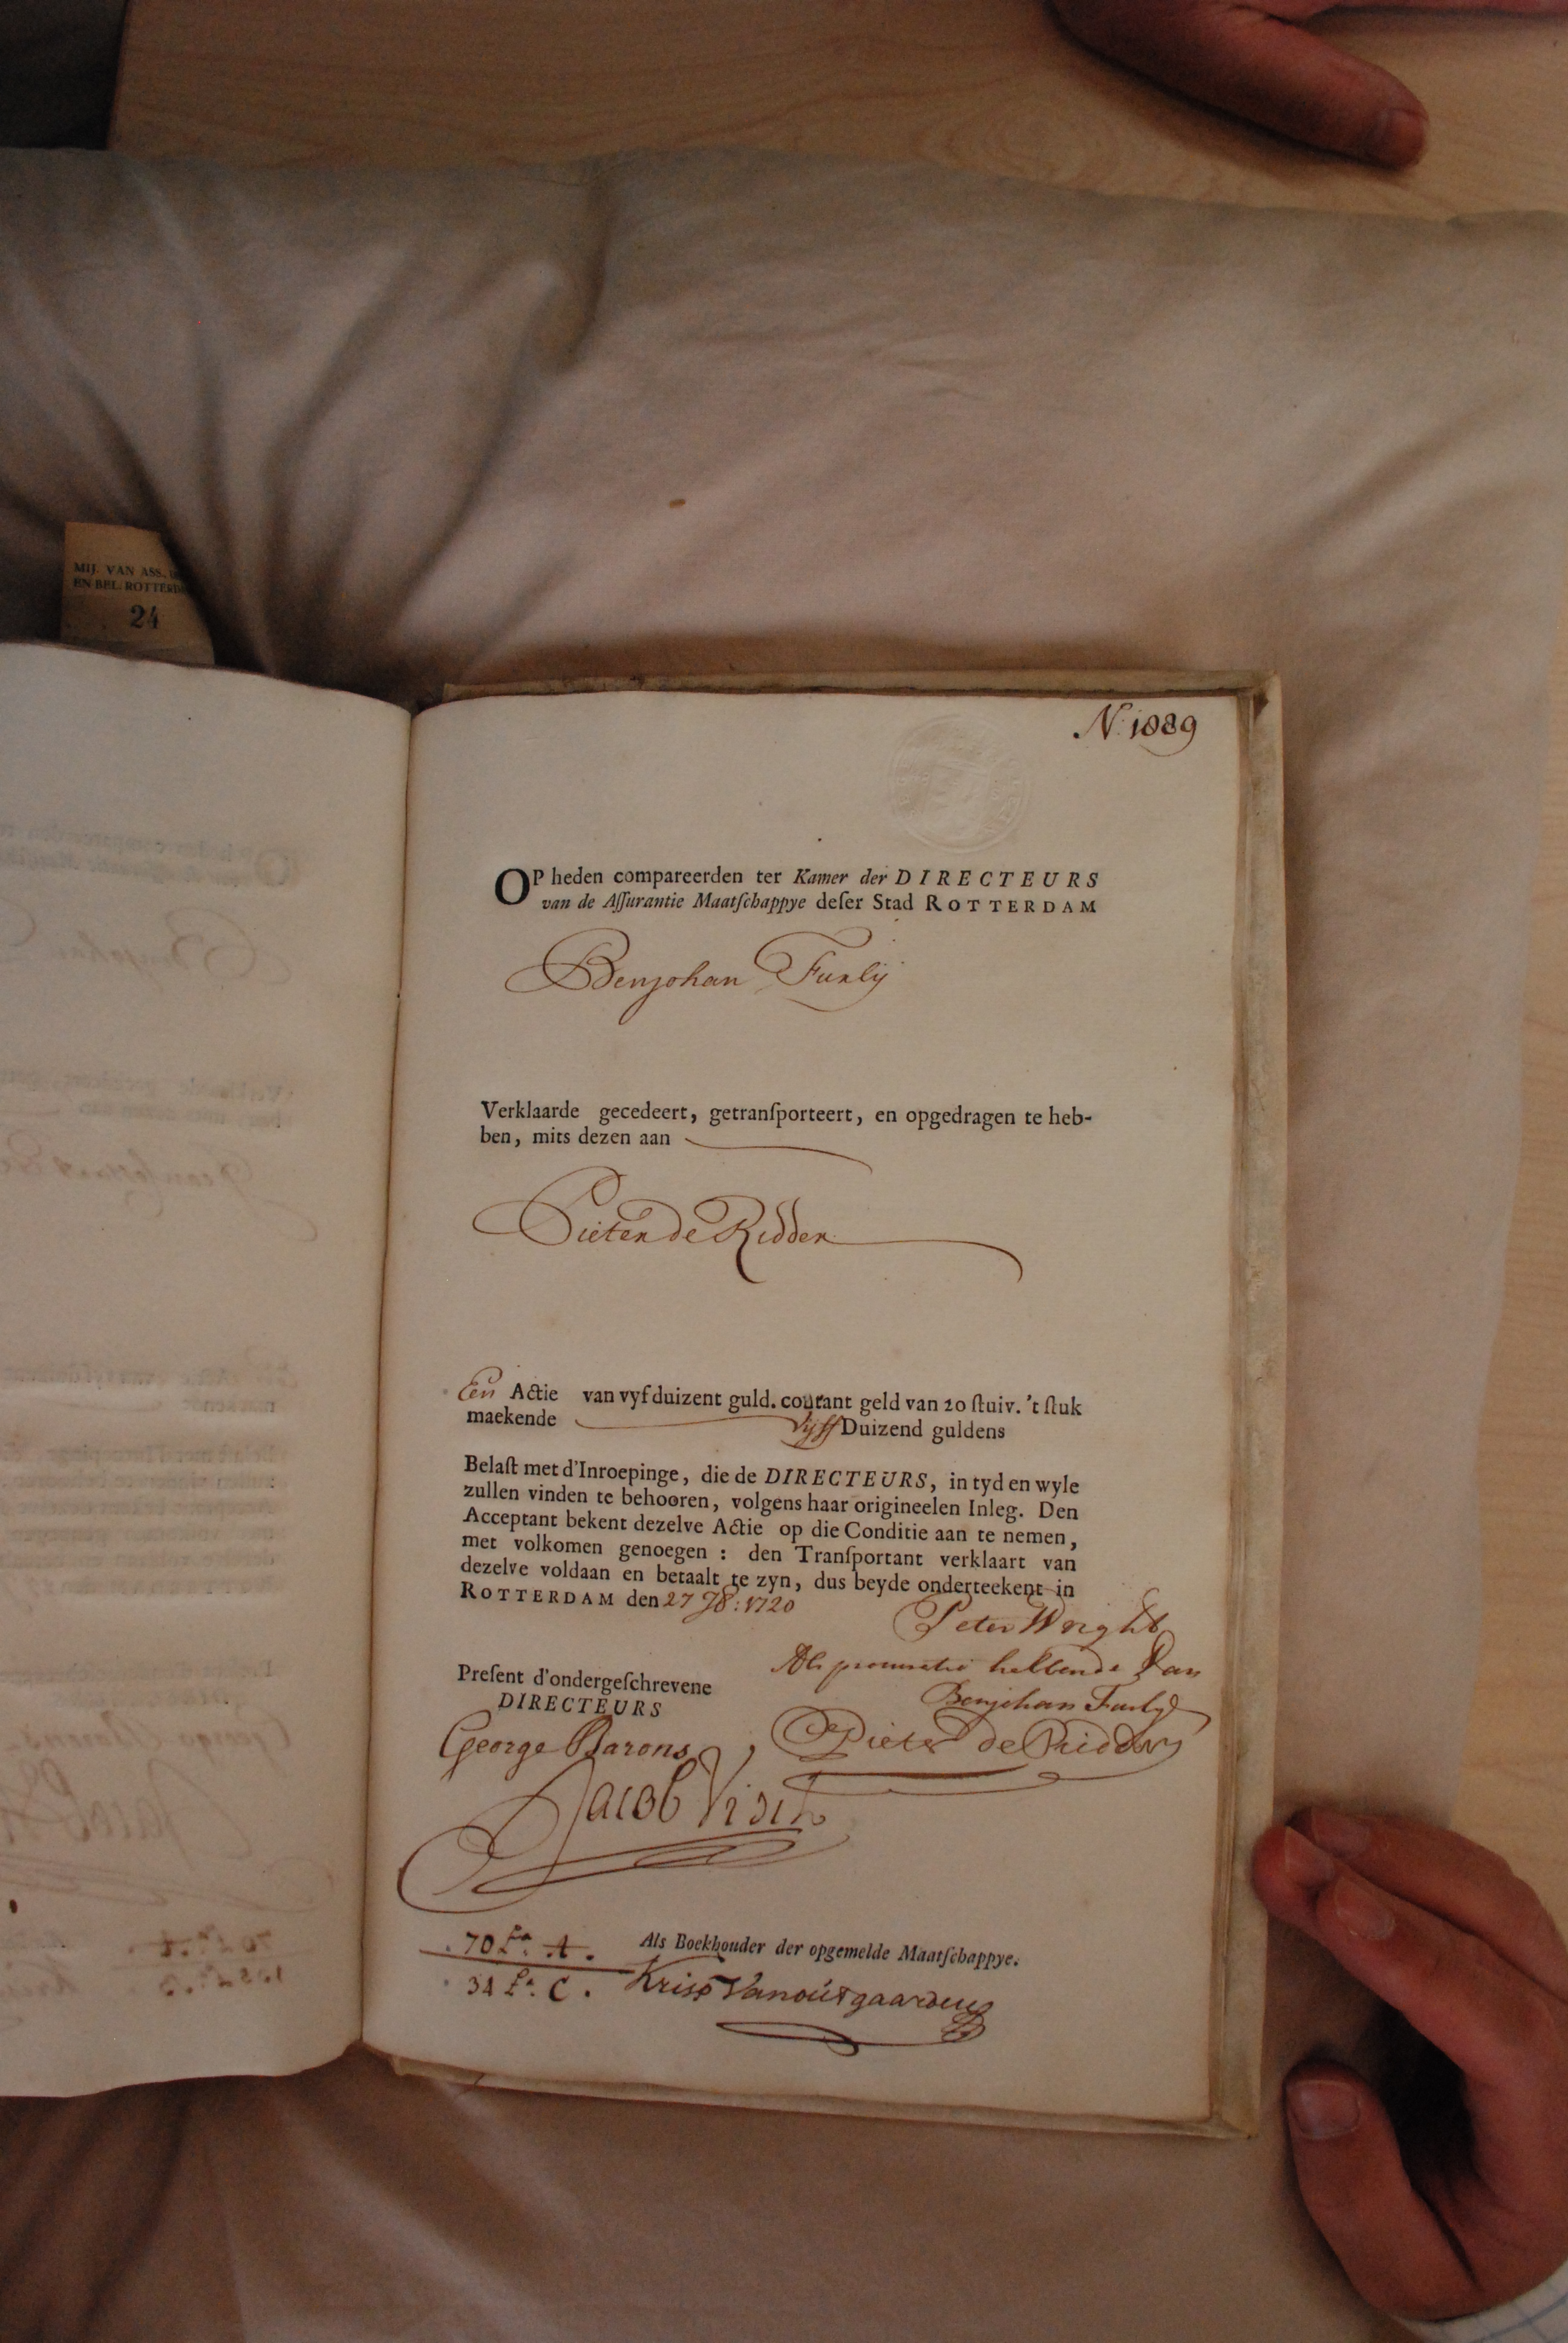 MIJ. VAN ASS.
EN BEL. ROTTERD
24
N. 1089
OP heden compareerden ter Kamer der DIRECTEURS
van de Aſſurantie Maatſchappye deſer Stad ROTTERDAM
Benjohan Furlij
Verklaarde gecedeert, getranſporteert, en opgedragen te heb-
ben, mits dezen aan
Pieter de Ridder
Een Actie van vyf duizent guld. courant geld van 20 ſtuiv. 't ſtuk
maekende vijff Duizend guldens
Belaſt met d'Inroepinge, die de DIRECTEURS, in tyd en wyle
zullen vinden te behooren, volgens haar origineelen Inleg. Den
Acceptant bekent dezelve Actie op die Conditie aan te nemen,
met volkomen genoegen : den Tranſportant verklaart van
dezelve voldaan en betaalt te zyn, dus beyde onderteekent in
ROTTERDAM den 27 7b: 1720
Peter Wright
Als procuratie hebbende van
Benjohan Furly
Preſent d'ondergeſchrevene
DIRECTEURS
George Barons
Pieter de Ridder
Jacob Visch
70 La. A.
Als Boekhouder der opgemelde Maatſchappye.
34 La. C.
Kriss Vanoutgaarden